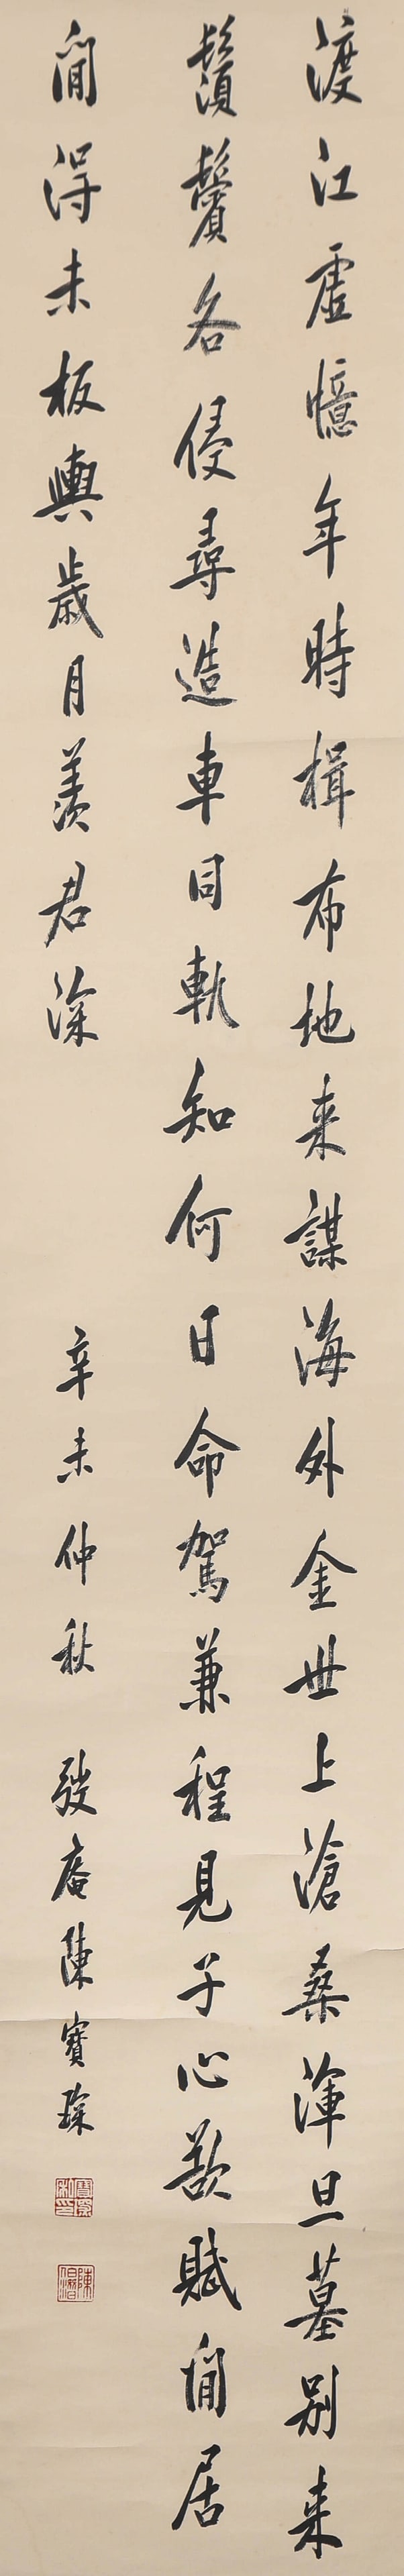 渡江虛憶年時楫布地來謀海外金世上滄桑渾旦暮別來
鬚鬢各侵尋造車同軌知何日命駕兼程見子心欲賦閒居
閒得未板輿歲月羨君深
辛未仲秋 弢庵陳寶琛
陳伯潛